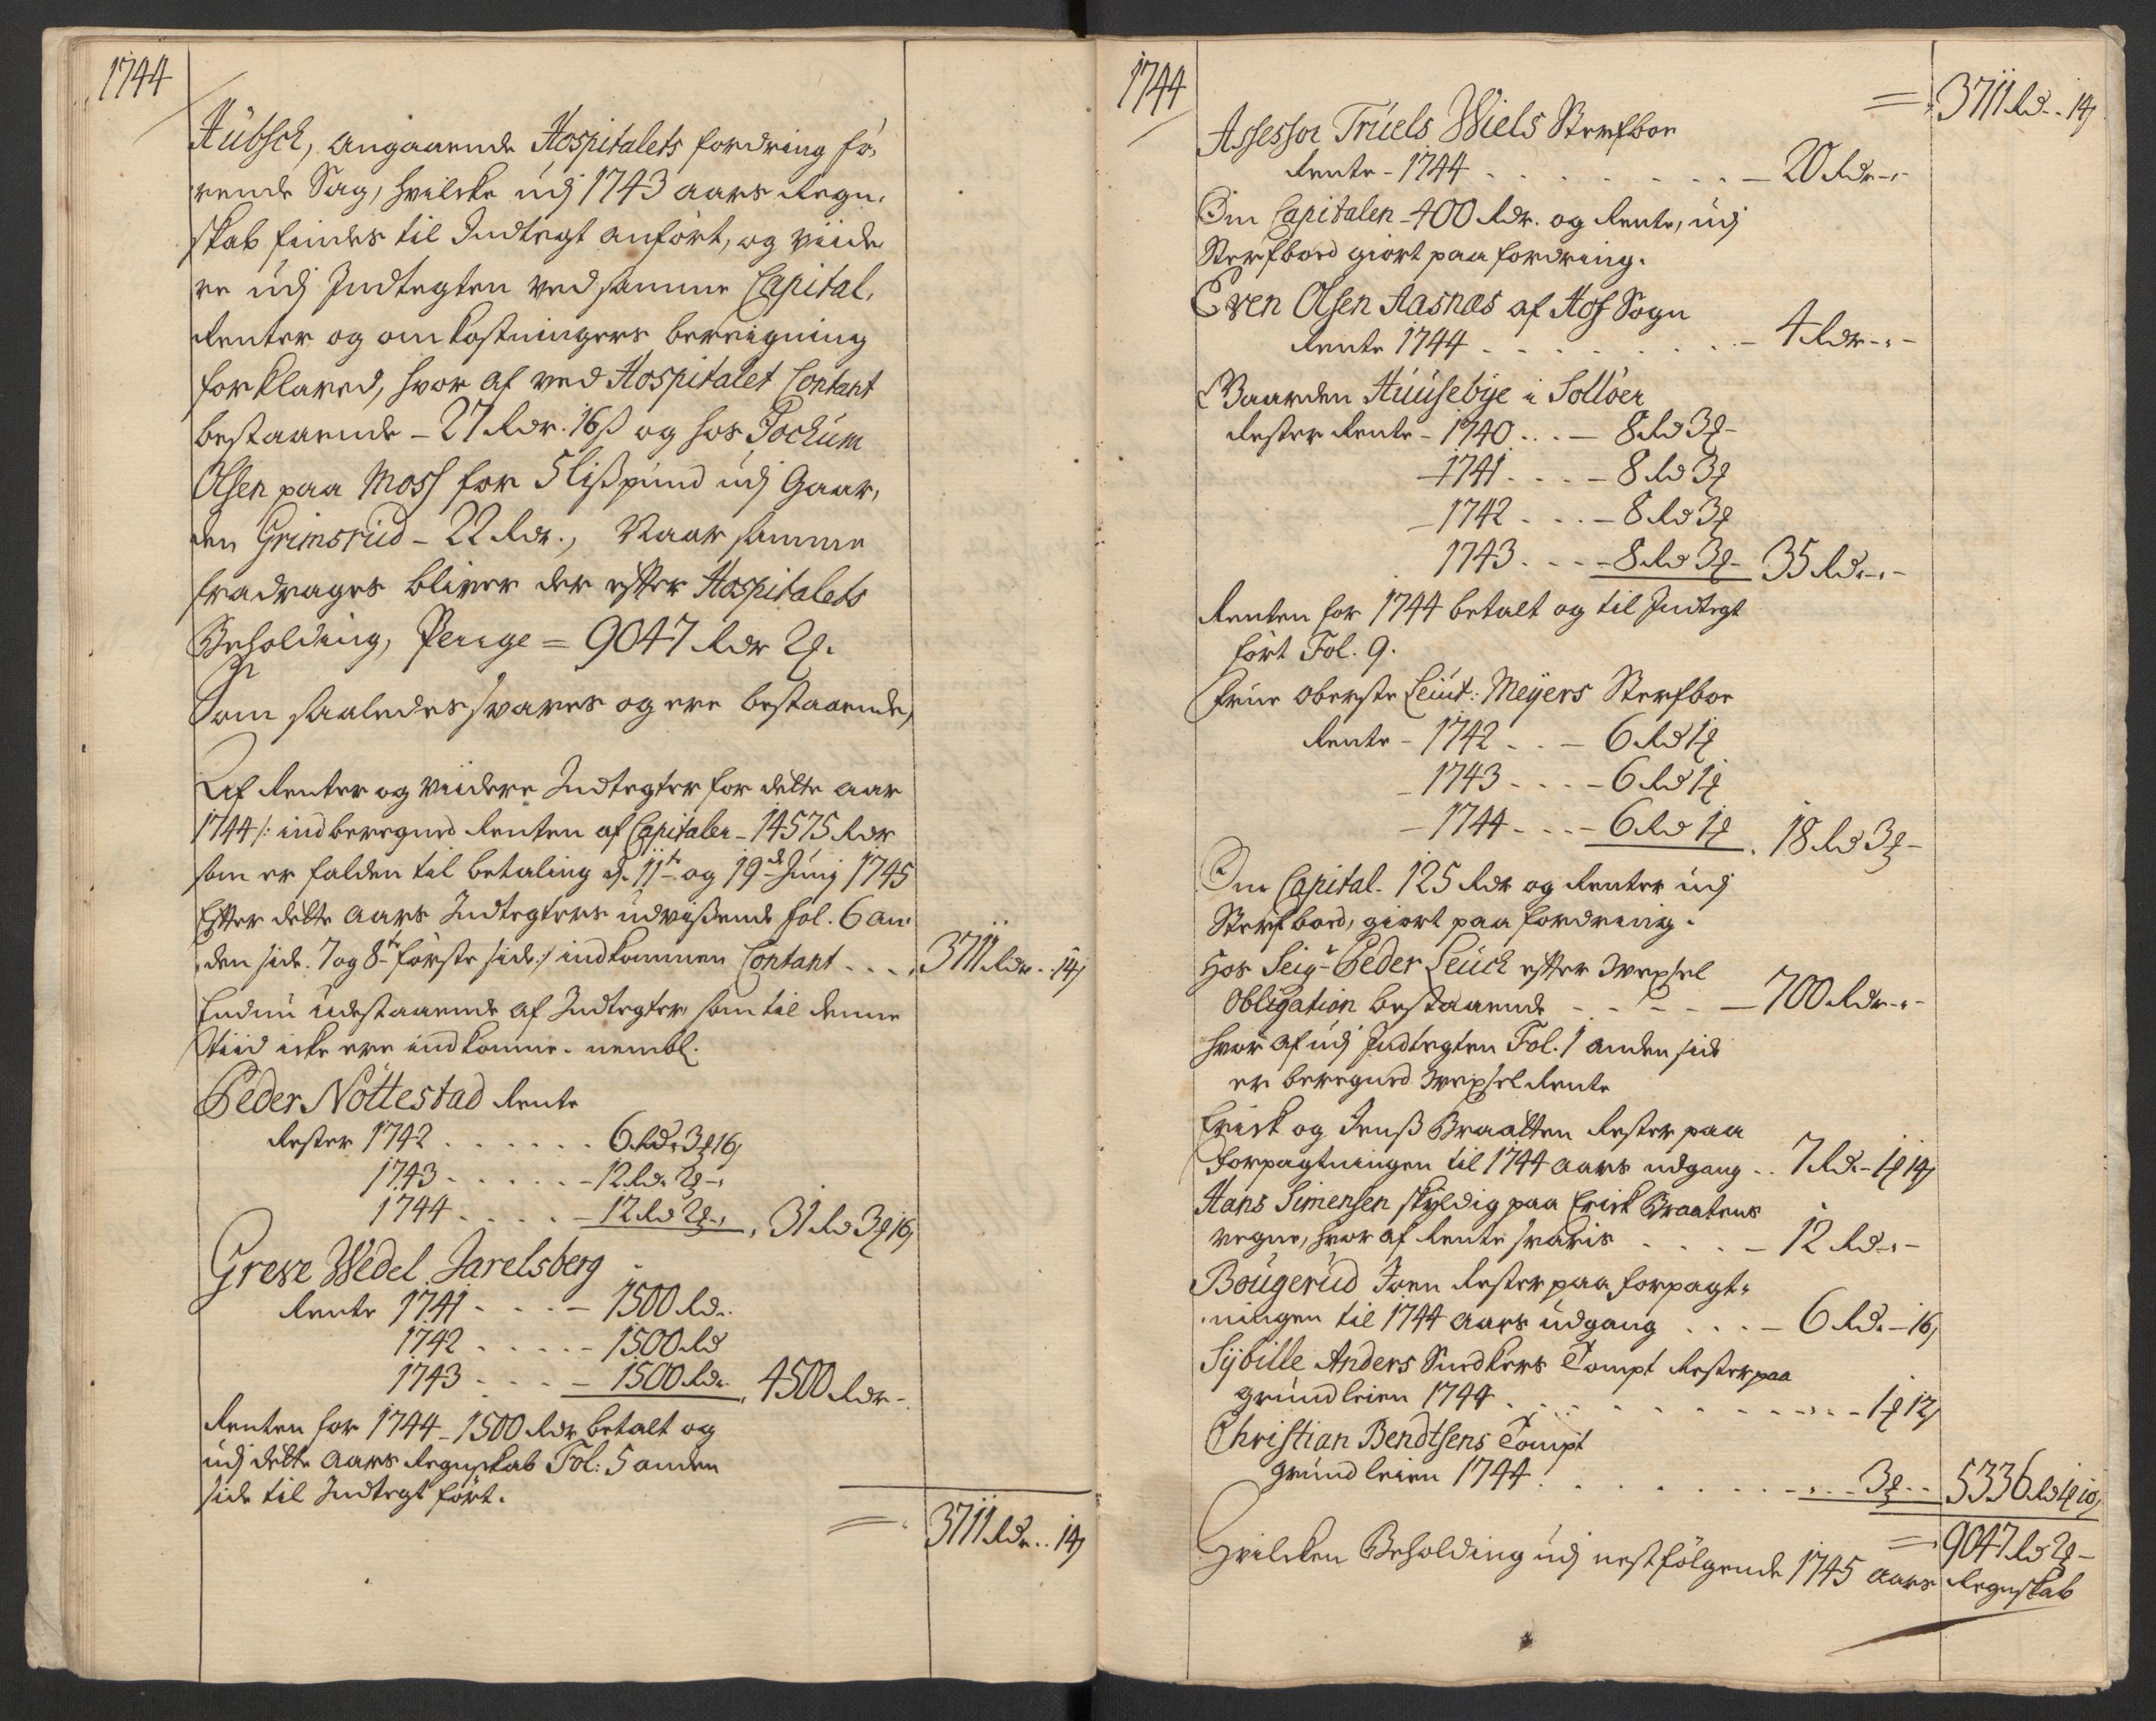 1744
Hübsch, angaaende Hospitalets fordring fø,
rende Sag, hvilcke udj 1743 aars Regn,
skab findes til Indtegt anført, og viide
re udj Indtegten ved samme Capital,
Renter og omkostningers beregning
forklared, hvor af ved Hospitalet Contant
bestaaende - 27 Rdr. 16 s og hos Jochum
Olsen paa Moss for 5 lispund udj Gaar,
den Grimsrud - 22 Rdr., Naar samme
fradrages bliver der efter Hospitalets
Beholding, Penge = 9047 Rdr 2 q.
Som saaledes svares og ere bestaaende,
Af Renter og viidere Indtegter for dette aar
1744 /: indberegned Renten af Capitalen - 14575 Rdr
som er falden til betaling d. 11te og 19de Junj 1745
Efter dette aars Indtegters udvisende fol. 6 an,
den side. 7 og 8te første side :/ indkommen Contant . . . 3711 Rdr. . 14 s
Endnu udestaaende af Indtegter som til denne
tiid icke ere indkomne. nembl.
Peder Nøttestad Rente
Rester 1742 . . . . . . 6 Rd. 3 q 16 s
1743 . . . . . - 12 Rd. 2 q -
1744 . . . . - 12 Rd 2 q - , 31 Rd 3 q 16 s
Greve Wedel Jarelsberg
Rente 1741 . . . - 1500 Rd.
1742 . . . . . - 1500 Rd
1743 . . . - 1500 Rdr. , 4500 Rdr -
Renten for 1744 - 1500 Rdr betalt og
udj dette aars Regnskab Fol: 5 anden
side til Indtegt ført.
= 3711 Rdr. . 14 s
1744
= 3711 Rd. . 14 s
Assessor Truels Wiels Sterfboe
Rente - 1744 . . . . . . . - 20 Rdr - , -
Om Capitalen - 400 Rdr. og Rente, udj
Sterfboed giort paafordring.
Even Olsen Aasnæs af Hof Sogn
Rente 1744 . . . . . . . - 4 Rdr - , -
Gaarden Huusebye i Solløer
Rester Rente - 1740 . . . - 8 Rd 3 q -
- 1741 . . . . - 8 Rd 3 q
- 1742 . . . - 8 Rd 3 q
1743 . . . - 8 Rd 3 q - 35 Rd - , -
Renten for 1744 betalt og til Indtegt
ført Fol. 9.
Frue Oberste Leiut: Meyers Sterfboe
Rente - 1742 . . - 6 Rd 1 q
- 1743 . . . - 6 Rd 1 q
- 1744 . . . - 6 Rd 1 q . 18 Rd 3 q -
Om Capital - 125 Rdr og Renter udj
Sterfboed, giort paafordring.
Hos Seigr Peder Leuch efter Wexsel
Obligation bestaaende - . - . - 700 Rdr - , -
hvor af udj Indtegten Fol. 1 anden side
er beregned Wexsel Rente
Erich og Jens Braatten Rester paa
Forpagtningen til 1744 aars udgang . . 7 Rd. - 1 q 14 s
Hans Simensen skyldig paa Erich Braatens
vegne, hvor af Rente svaris . . . - 12 Rd - , -
Bougerud Joen Rester paa forpagt,
ningen til 1744 aars udgang . . . - 6 Rd. - 16 s
Sybille Anders Snedkers Tompt Rester paa
grundleien 1744 . . . . . . . . . - 1 q 12 s
Christian Bendtsens Tompt
grundleien 1744 . . . . . . . . . 3 q . . 5336 Rd 1 q 10 s
= 9047 Rd 2 q -
Hvilcken Beholding udj nestfølgende 1745 aars Regnskab